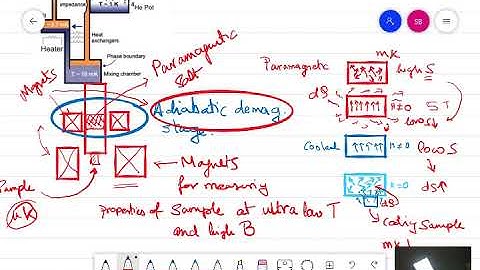 impedance
T = 1 K
He Pot
Heater
Heat
exchangers
Phase boundary
Mixing chamber
SB
Magnets
Paramagnetic
Salt
Adiabatic demag.
stage.
Magnets
for measuring
properties of sample at ultra low T
and high B
Sample
μK
mK
Paramagnetic
high S
dS
B≠0
S↓
low S
Cooled
low S
B=0
dS↑
dS
cooling sample